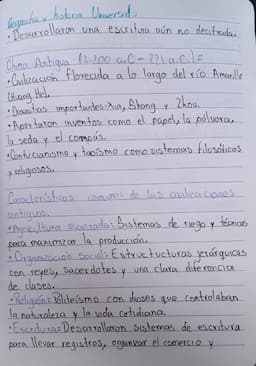 Geografía y historia Universal.
• Desarrollaron una escritura aún no decifrada.
China Antigua (2.200 a.C - 221 a.c.)=
• Civilización florecida a lo largo del río Amarillo
(Huang He).
• Dinastías importantes: Xia, Shang y Zhou.
• Aportaron inventos como el papel, la pólvora,
la seda y el compás.
• Confucianismo y taoísmo como sistemas filosóficos
y religiosos.
Características comunes de las civilizaciones
antiguas.
• Agricultura avanzada: Sistemas de riego y técnicas
para maximizar la producción.
• Organización Social: Estructucturas jerárquicas
con reyes, sacerdotes y una clara diferencia
de clases.
• Religión: Politeísmo con dioses que controlaban
la naturaleza y la vida cotidiana.
• Escritura: Desarrollaron sistemas de escritura
para llevar registros, organizar el comercio y